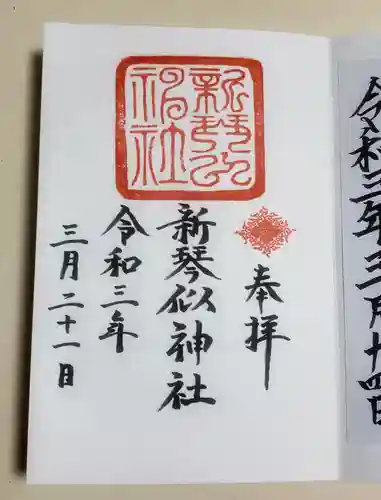 令和三年三月十四日
奉拝
新琴似神社
令和三年
三月二十一日
新琴似
神社